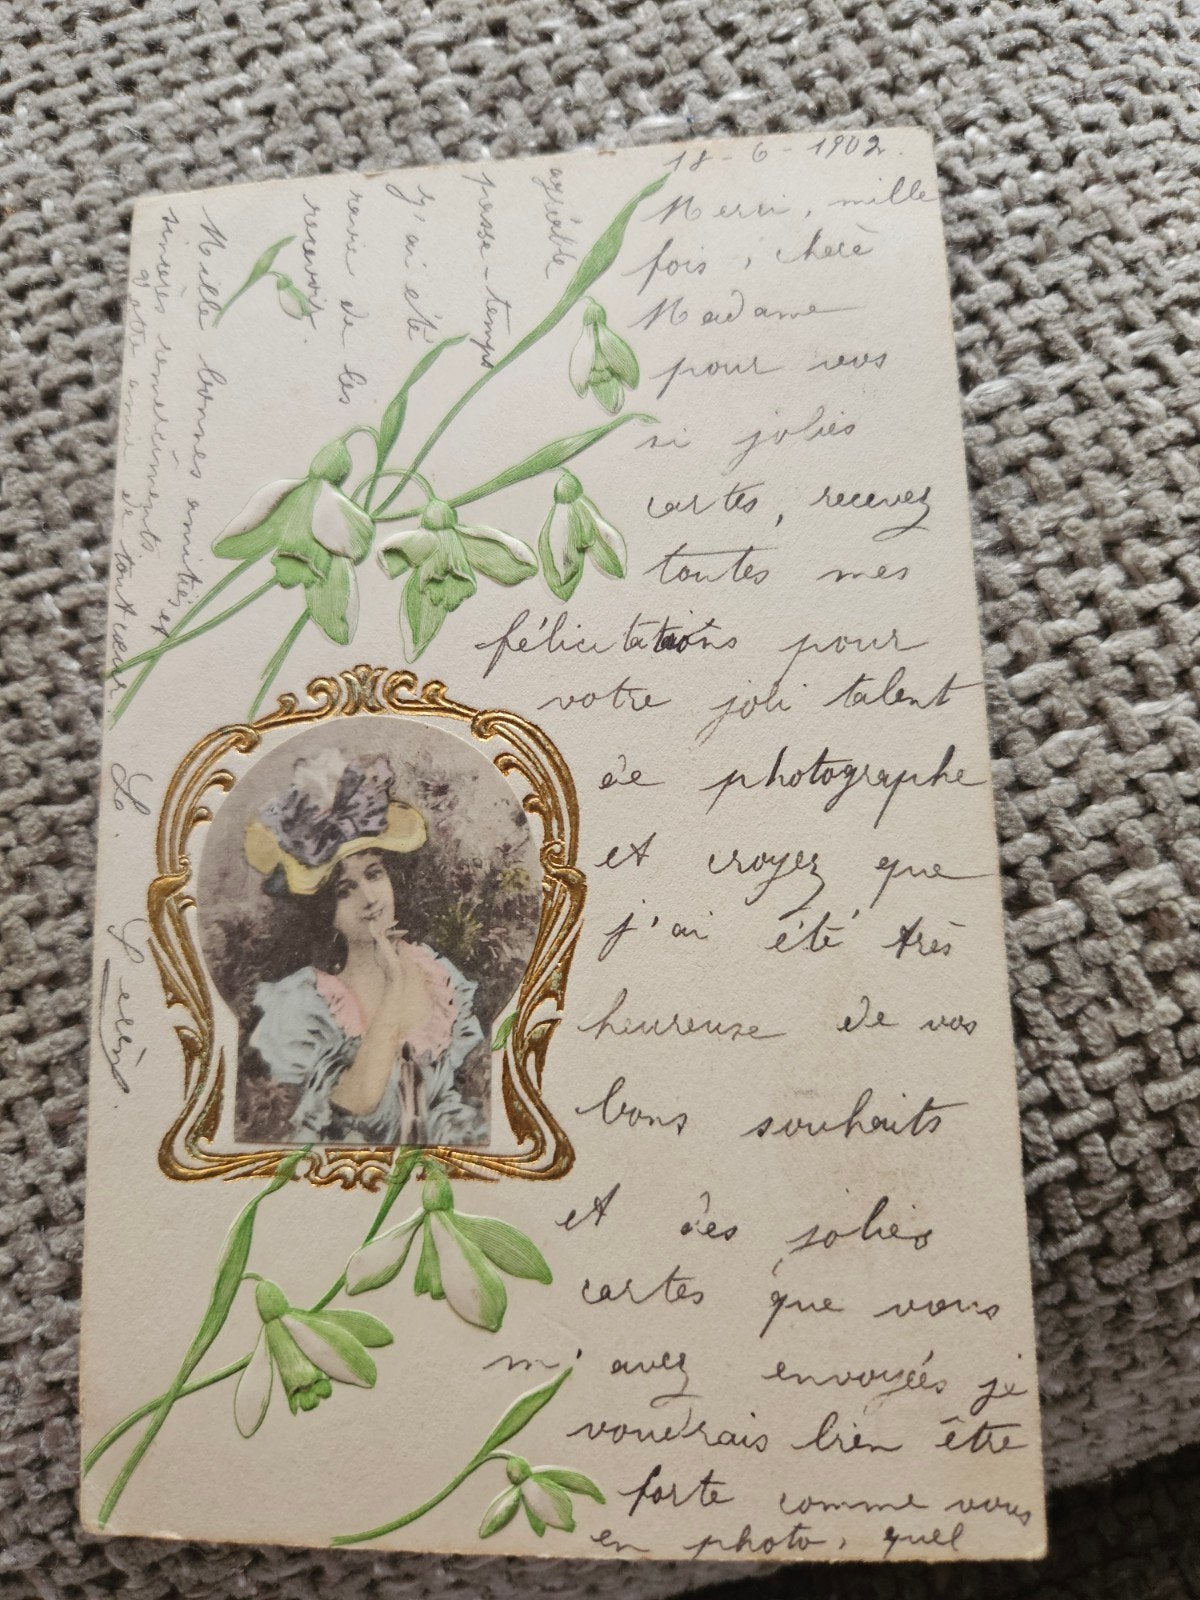 18-6-1902.
Merci, mille
fois, chère
Madame
pour vos
si jolies
cartes, recevez
toutes mes
félicitations pour
votre joli talent
de photographe
et croyez que
j'ai été très
heureuse de vos
bons souhaits
et des jolies
cartes que vous
m'avez envoyées je
voudrais bien être
forte comme vous
en photo, quel
agréable
passe-temps
j'ai été
ravie de les
recevoir.
Mille bonnes amitiés et
sincères remerciments
votre amie de tout cœur
L.